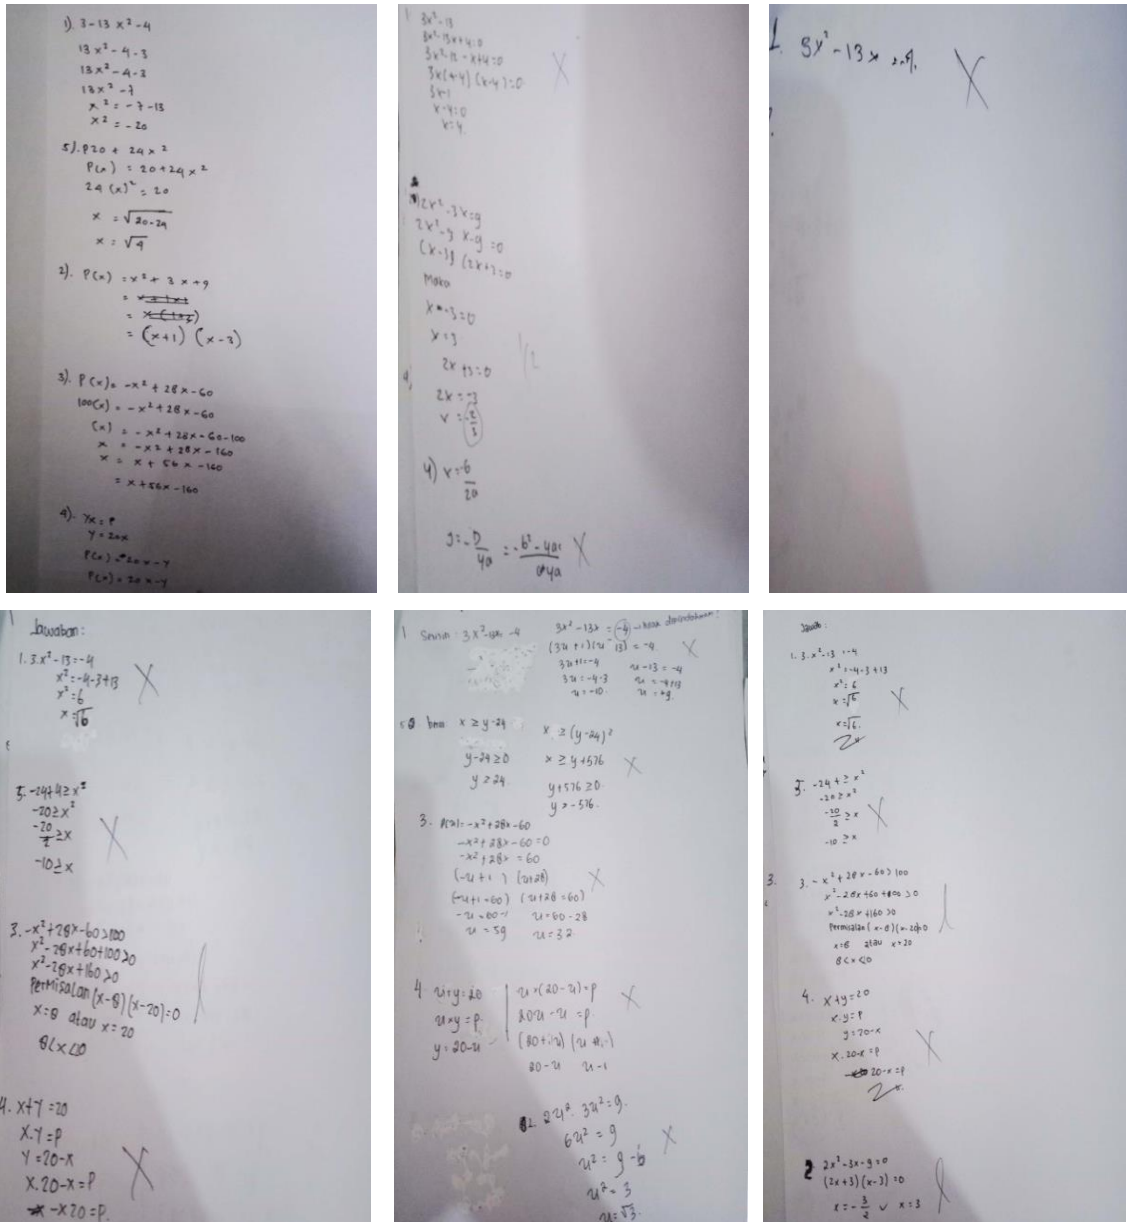 1). 3-13 x² - 4
13x² - 4 - 3
13x² - 4 - 3
13x² - 7
x² = -7-13
x² = -20
5). P20 + 24x²
P(x) = 20+24x²
24(x)² = 20
x = √20-24
x = √4
2). P(x) = x² + 3x + 9
= (x+1) (x-3)
3). P(x) = -x² + 28x - 60
100(x) = -x² + 28x - 60
(x) = -x² + 28x - 60-100
x = -x² + 28x - 160
x = x + 56x - 160
= x+56x-160
4). yx = P
y = 20x
P(x) = 20x-y
P(x) = 20x-y
1
3x²-13
3x²-13x+4=0
3x²-12-x+4=0
3x(x-4) (x-4)=0
3x-1
x-4=0
x=4
2x²-3x=9
2x²-3x-9=0
(x-3) (2x+3=0
Maka
x-3=0
x=3
2x+3=0
2x=-3
1/2
4)
y=-D/4a = -b²-4ac/4a
1. 3x²-13x = -4.
Jawaban:
1. 3.x²-13=-4
x²=-4-3+13
x²=6
x=√6
5. -24+4≥x²
-20≥x²
-20/2≥x
-10≥x
3. -x²+28x-60>100
x²-28x+60+100>0
x²-28x+160>0
Permisalan (x-8)(x-20)=0
x=8 atau x=20
8<x<20
4. x+y=20
x.y=P
y=20-x
x.20-x=P
-x20=P.
1
3x²-13x = -4
(3x+1)(x-13) = -4
3x+1=-4 x-13=-4
3x=-4-3 x=-4+13
x=-10. x=+9.
x ≥ y-24 x ≥ (y-24)²
y-24≥0 x ≥ y+576
y≥24. y+576≥0
y>-576.
3. P(x)=-x²+28x-60
-x²+28x-60=0
-x²+28x=60
(-x+1) (x+28)
(-x+1=60) (x+28=60)
-x=60-1 x=60-28
x=59 x=32
4. x+y=20 x×(20-x)=P
x×y=P. 20x-x=P.
y=20-x
20-x x-1
2. 2x². 3x²=9.
6x²=9
x²=9-6
x²=3
x=√3.
Jawab:
1. 3.x²-13=-4
x²=-4-3+13
x²=6
x=√6
x=√6.
5. -24+4≥x²
-20≥x²
-20/2≥x
-10≥x
3.
3. -x²+28x-60>100
x²-28x+60+100>0
x²-28x+160>0
Permisalan (x-8)(x-20)>0
x=8 atau x=20
8<x<20
4. x+y=20
x.y=P
y=20-x
x.20-x=P
20-x=P
2 2x²-3x-9=0
(2x+3)(x-3)=0
x=-3/2 v x=3